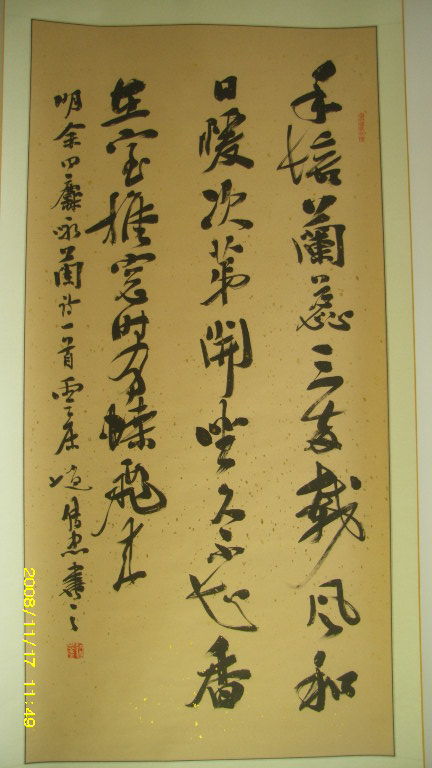 手培蘭蕊三栽風和
日暖次第開坐久不知香
在室推窗時有蝶飛來
明余同麓咏蘭詩一首雲庄書之
2008/11/17 11:49